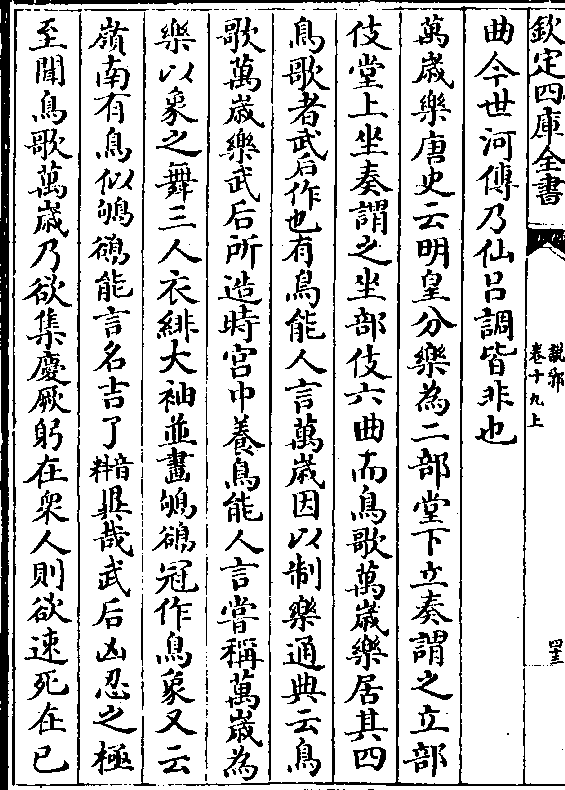 欽定四庫全書
說郛
卷十九上
四三
曲今世河傳乃仙呂調皆非也
萬歲樂唐史云明皇分樂為二部堂下立奏謂之立部
伎堂上坐奏謂之坐部伎六曲而鳥歌萬歲樂居其四
鳥歌者武后作也有鳥能人言萬歲因以制樂通典云鳥
歌萬歲樂武后所造時宮中養鳥能人言嘗稱萬歲為
樂以象之舞三人衣緋大袖並畫鴝鵒冠作鳥象又云
嶺南有鳥似鴝鵒能言名吉了音料異哉武后凶忍之極
至聞鳥歌萬歲乃欲集慶厥躬在衆人則欲速死在已